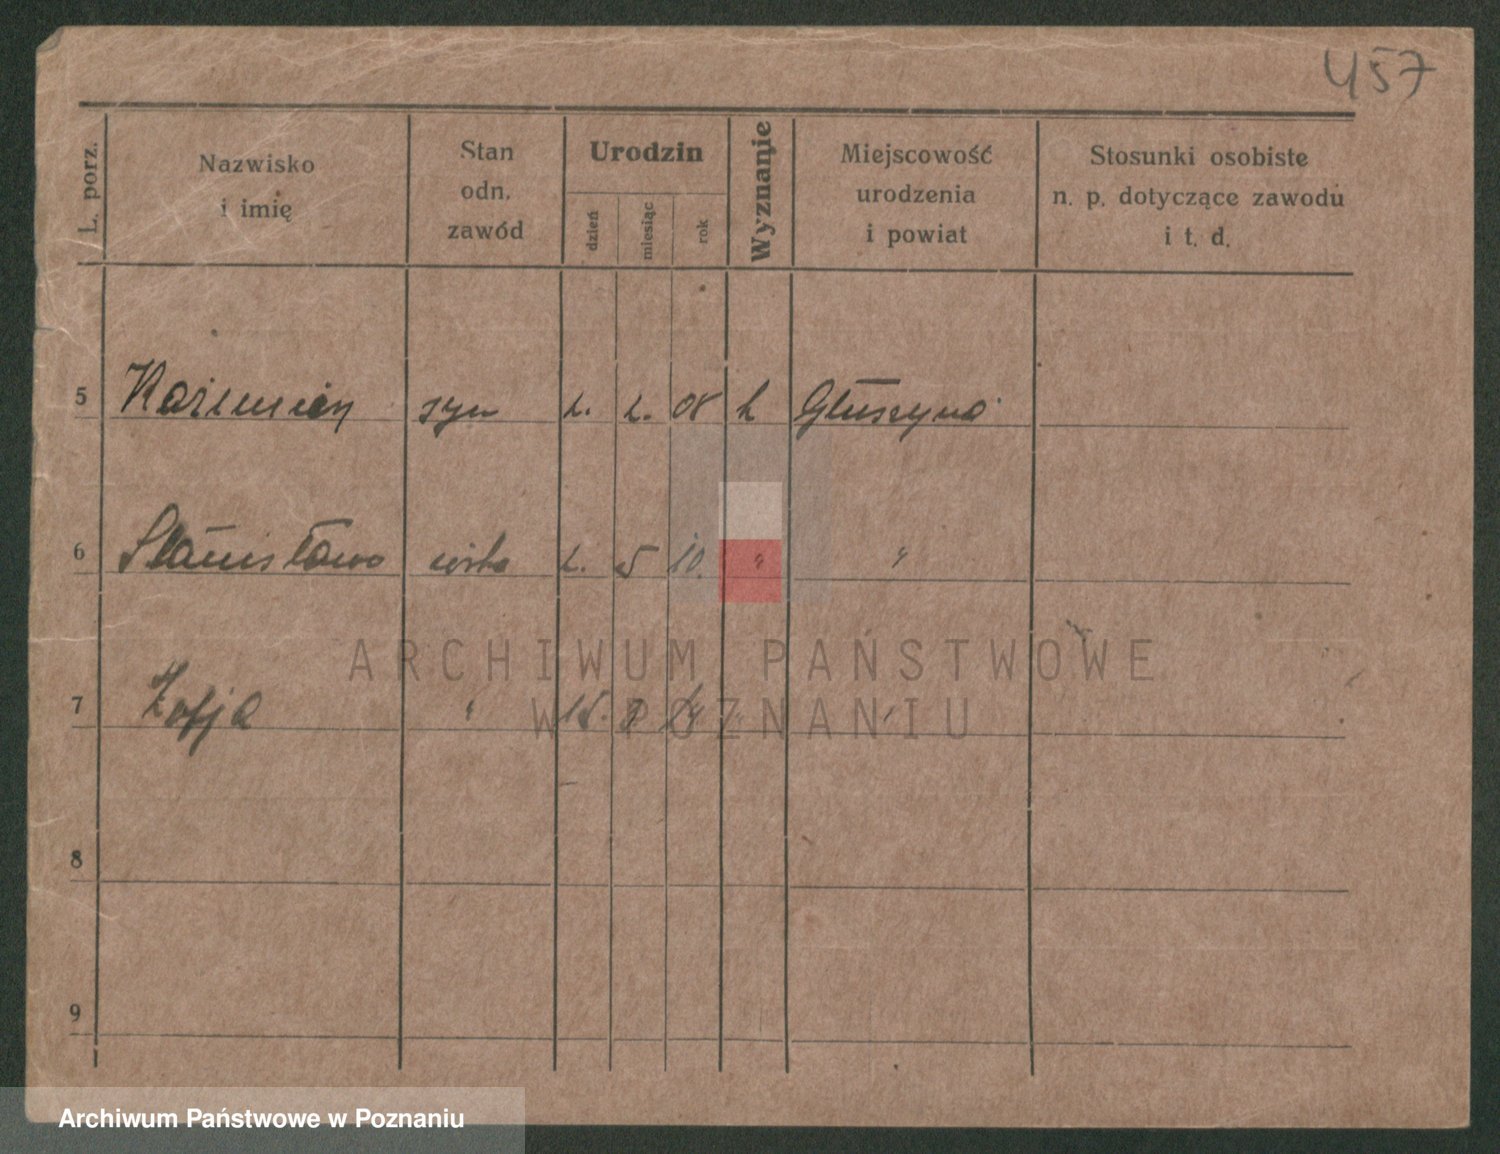 457
L. porz.
Nazwisko
i imię
Stan
odn.
zawód
Urodzin
dzień
miesiąc
rok
Wyznanie
Miejscowość
urodzenia
i powiat
Stosunki osobiste
n. p. dotyczące zawodu
i t. d.
5 syn 2. 2. 08 k Głuszyna
6 Stanisława 2. 5 10. " "
7 Zofja " 15. "
8
9
ARCHIWUM PAŃSTWOWE
W POZNANIU
Archiwum Państwowe w Poznaniu